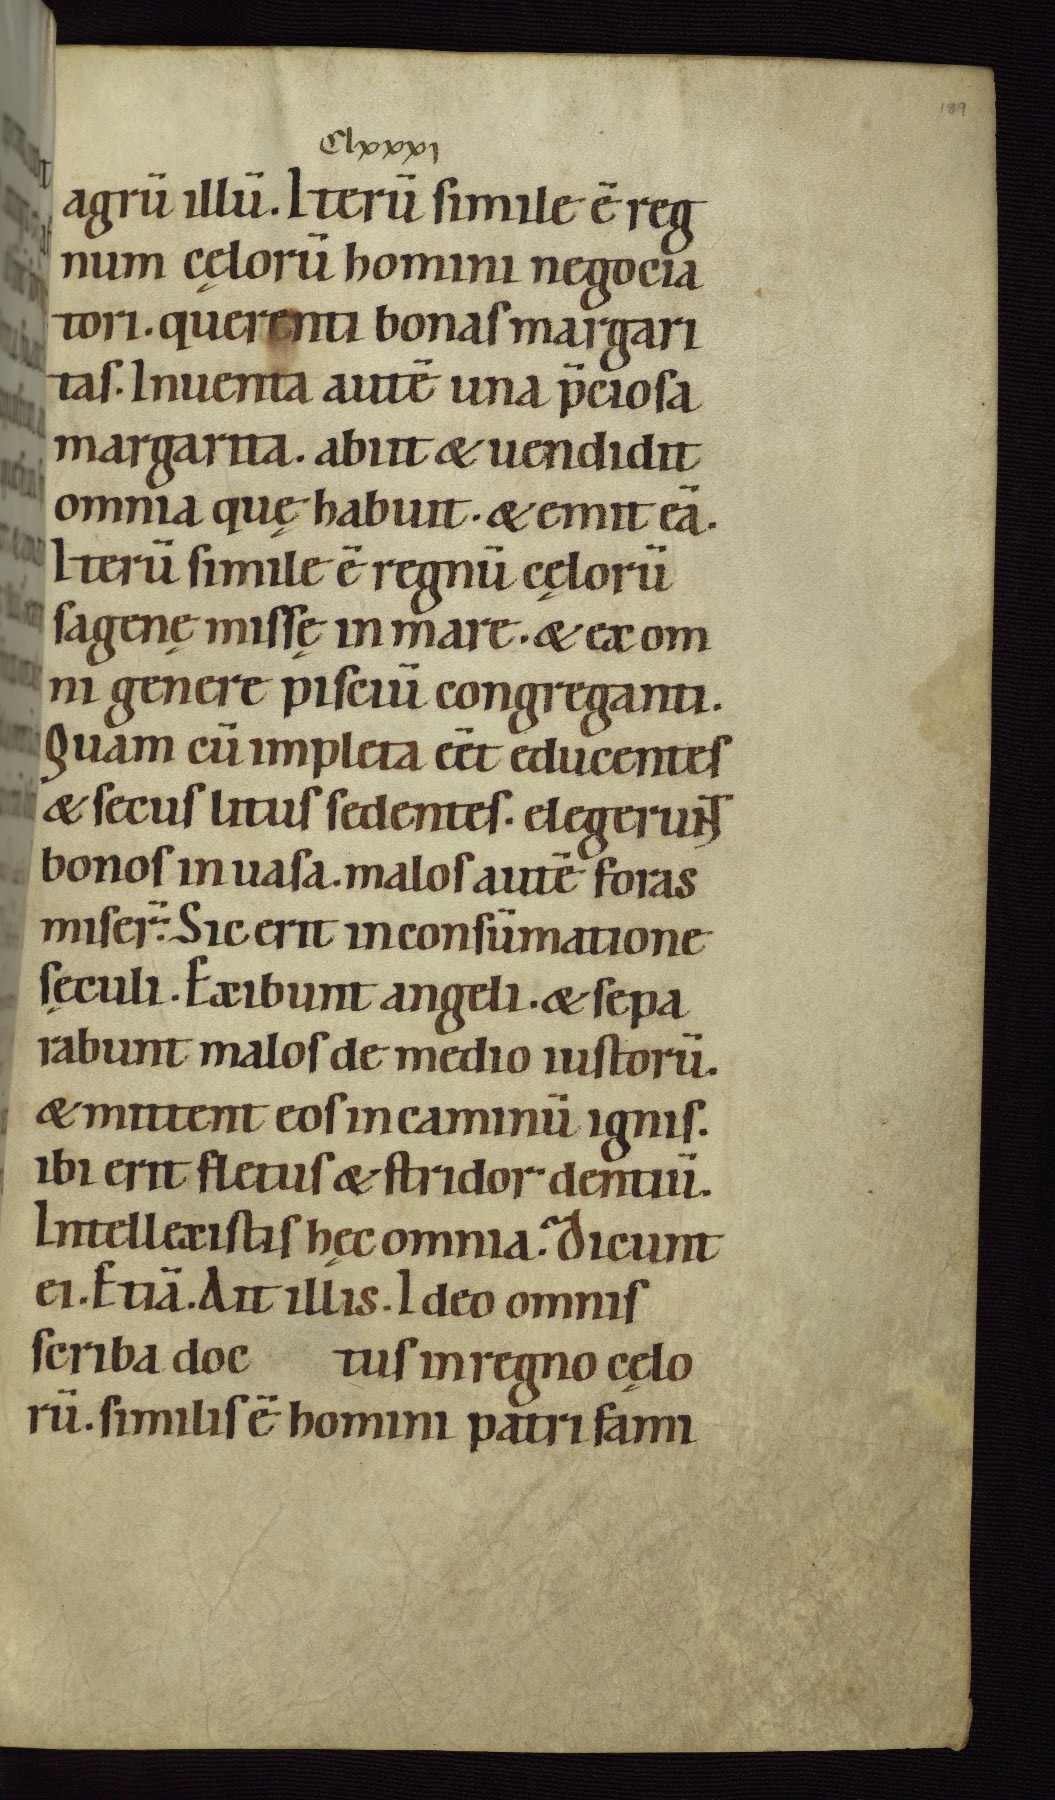 189
Clxxxi
agrū illū. Iterū simile ē reg
num cęlorū homini negocia
tori. querenti bonas margari
tas. Inuenta autē una p̄ciosa
margarita. abiit & uendidit
omnia quę habuit. & emit eā.
Iterū simile ē regnū cęlorū
sagenę missę in mare. & ex om
ni genere pisciū congreganti.
Quam cū impleta eēt educentes
& secus litus sedentes. elegerunt
bonos in uasa. malos autē foras
miser̄. Sic erit in consūmatione
sęculi. Exibunt angeli. & sepa
rabunt malos de medio iustorū.
& mittent eos in caminū ignis.
ibi erit fletus & stridor dentiū.
Intellexistis hęc omnia? Dicunt
ei. Etiā. Ait illis. Ideo omnis
scriba doc tus in regno cęlo
rū. similis ē homini patri fami